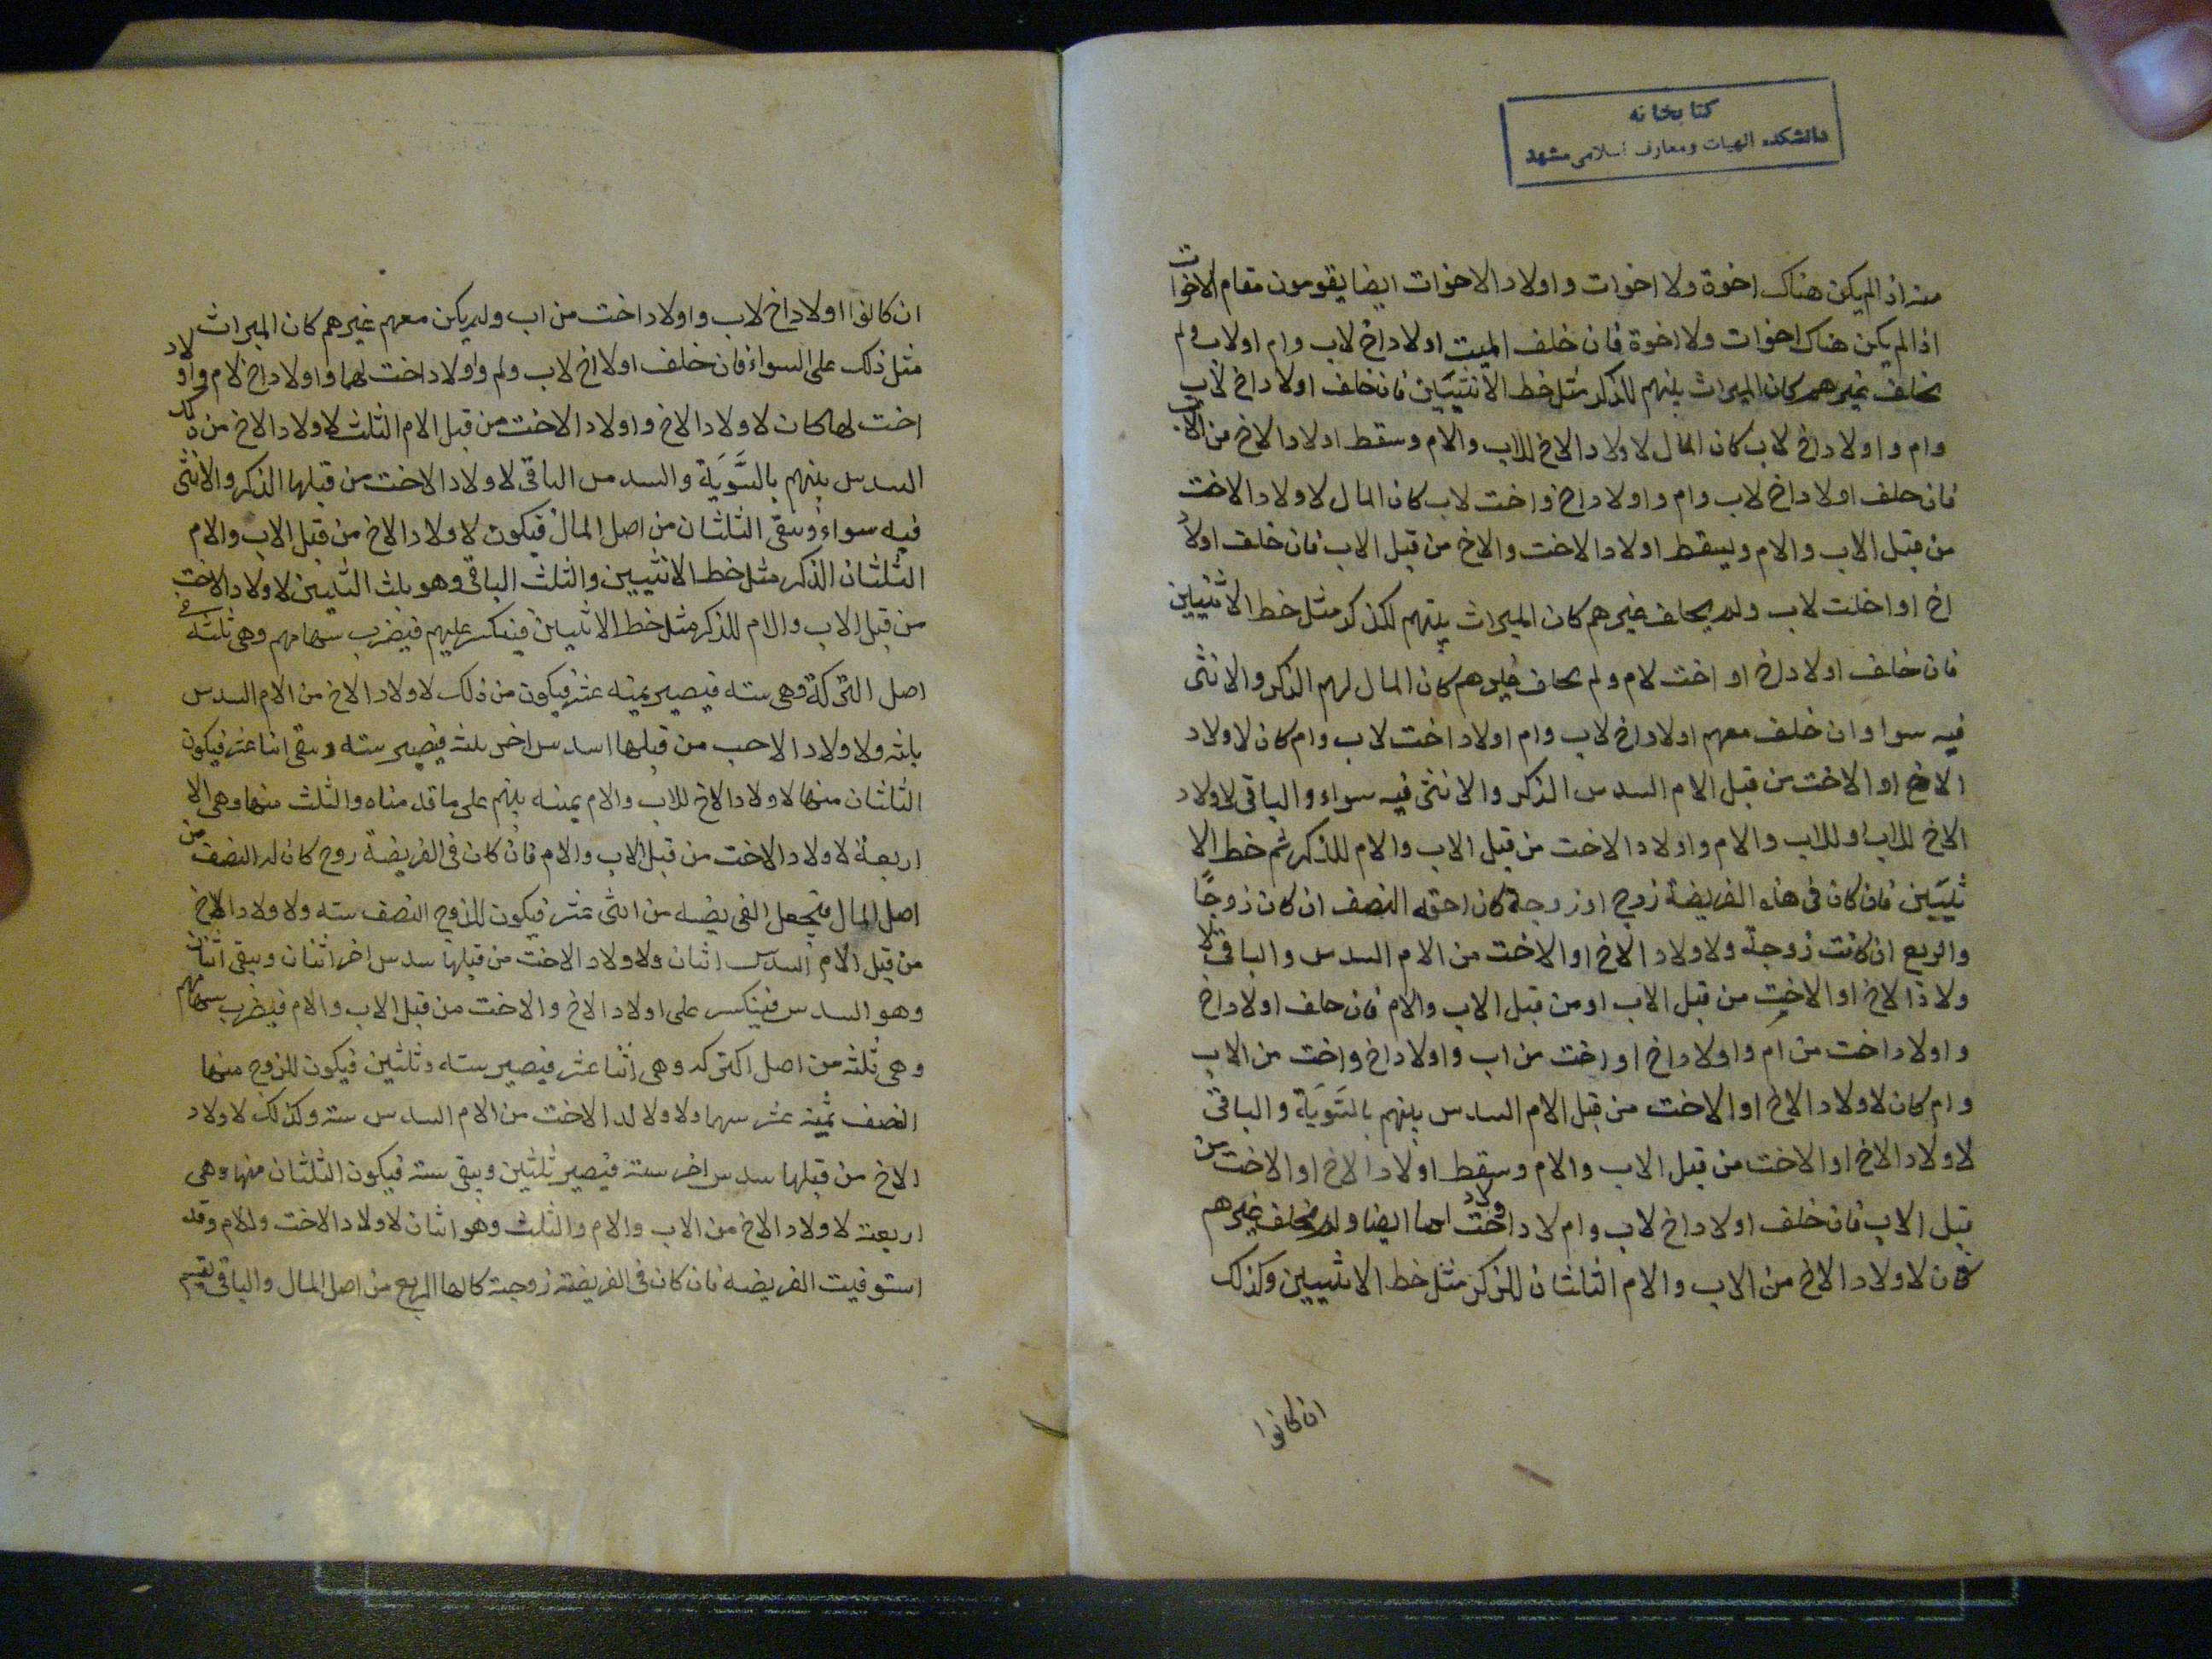 كتابخانه
دانشكده الهيات ومعارف اسلامى مشهد
منه اذا لم يكن هناك اخوة ولا اخوات واولاد الاخوات ايضا يقومون مقام الاخوات
اذا لم يكن هناك اخوات ولا اخوة فان خلف الميت اولاد اخ لاب وام اولاب ولم
يخلف غيرهم كان الميراث بينهم للذكر مثل خط الانثيين فان خلف اولاد اخ لاب
وام واولاد اخ لاب كان المال لاولاد الاخ للاب والام وسقط اولاد الاخ من الاب
فان خلف اولاد اخ لاب وام واولاد اخ واخت لاب كان المال لاولاد الاخت
من قبل الاب والام ويسقط اولاد الاخت والاخ من قبل الاب فان خلف اولاد
اخ او اخت لاب ولم يخلف غيرهم كان الميراث بينهم للذكر مثل خط الانثيين
فان خلف اولاد اخ او اخت لام ولم يخلف غيرهم كان المال لهم الذكر والانثى
فيه سوا وان خلف معهم اولاد اخ لاب وام اولاد اخت لاب وام كان لاولاد
الاخ او الاخت من قبل الام السدس الذكر والانثى فيه سواء والباقى لاولاد
الاخ للاب او للاب والام واولاد الاخت من قبل الاب والام للذكر ثم خط الا
نثيين فان كان فى هذه الفريضة زوج او زوجة كان احقه النصف ان كان زوجًا
والربع ان كانت زوجة ولاولاد الاخ او الاخت من الام السدس والباقى لا
ولاد الاخ او الاخت من قبل الاب او من قبل الاب والام فان خلف اولاد اخ
واولاد اخت من ام واولاد اخ او اخت من اب واولاد اخ واخت من الاب
وام كان لاولاد الاخ او الاخت من قبل الام السدس بينهم بالسَّويَة والباقى
لاولاد الاخ او الاخت من قبل الاب والام وسقط اولاد الاخ او الاخت من
قبل الاب فان خلف اولاد اخ لاب وام لاد اخت ولاد لهما ايضا ولم يخلف غيرهم
كان لاولاد الاخ من الاب والام الثلثان للذكر مثل خط الانثيين وكذلك
ان كانوا
ان كانوا اولاد اخ لاب واولاد اخت من اب ولم يكن معهم غيرهم كان الميراث
مثل ذلك على السواء فان خلف اولاد اخ لاب ولم واولاد اخت لهما واولاد اخ لام واولاد
اخت لها كان لاولاد الاخ واولاد الاخت من قبل الام الثلث لاولاد الاخ من ذلك
السدس بينهم بالسَّويَة والسدس الباقى لاولاد الاخت من قبلها الذكر والانثى
فيه سواء ويبقى الثلثان من اصل المال فيكون لاولاد الاخ من قبل الاب والام
الثلثان الذكر مثل خط الانثيين والثلث الباقى وهو ثلث الثلثين لاولاد الاخت
من قبل الاب والام للذكر مثل خط الانثيين فينكسر عليهم فيضرب سهامهم وهى ثلثه فى
اصل التركة وهى سته فيصير ثمينه عشر فيكون من ذلك لاولاد الاخ من الام السدس
ثلثه ولاولاد الاخت من قبلها اسدس اخر ثلثه فيصير سته ويبقى اثنا عشر فيكون
الثلثان منها لاولاد الاخ للاب والام ثمينه بينهم على ما قدمناه والثلث منها وهى الا
اربعة لاولاد الاخت من قبل الاب والام فان كان فى الفريضة زوج كان له النصف من
اصل المال فتجعل الفريضه من اثنى عشر فيكون للزوج النصف سته ولاولاد الاخ
من قبل الام السدس اثنان ولاولاد الاخت من قبلها سدس اخر اثنان ويبقى اثنان
وهو السدس فينكسر على اولاد الاخ والاخت من قبل الاب والام فيضرب سهامهم
وهى ثلثه من اصل التركه وهى اثنا عشر فيصير سته وثلثين فيكون للزوج منها
النصف ثمينة عشر سهما ولاولاد الاخت من الام السدس سته وكذلك لاولاد
الاخ من قبلها سدس اخر سته فيصير ثلثين ويبقى سته فيكون الثلثان منها وهى
اربعة لاولاد الاخ من الاب والام والثلث وهو اثنان لاولاد الاخت وللام وقد
استوفيت الفريضه فان كان فى الفريضة زوجة كالها الربع من اصل المال والباقى يقسم